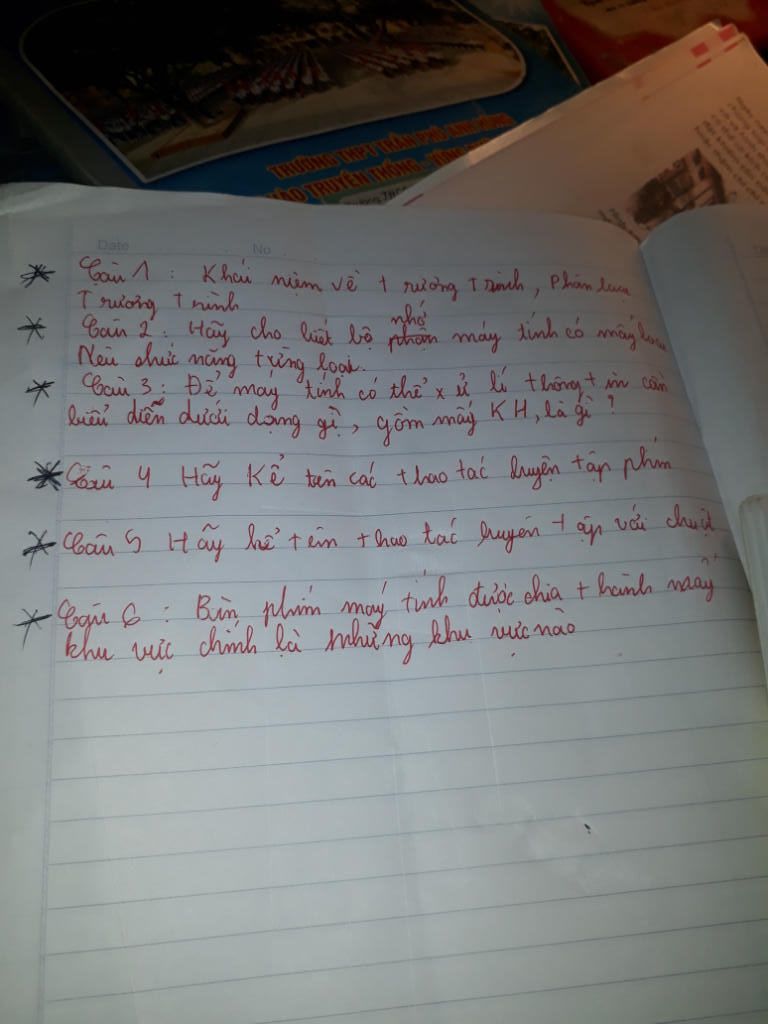 TRƯỜNG THPT TRẦN PHÚ
HÀO TRUYỀN THỐNG
Date No
Câu 1: Khái niệm về trương trình, phân loại
Trương trình
Câu 2: Hãy cho biết bộ phận nhớ máy tính có mấy loại
Nêu chức năng từng loại.
Câu 3: Để máy tính có thể xử lí thông tin cần
biểu diễn dưới dạng gì, gồm mấy KH, là gì?
Câu 4 Hãy kể tên các thao tác luyện tập phím
Câu 5 Hãy kể tên thao tác luyện tập với chuột
Câu 6: Bàn phím máy tính được chia thành mấy
khu vực chính là những khu vực nào